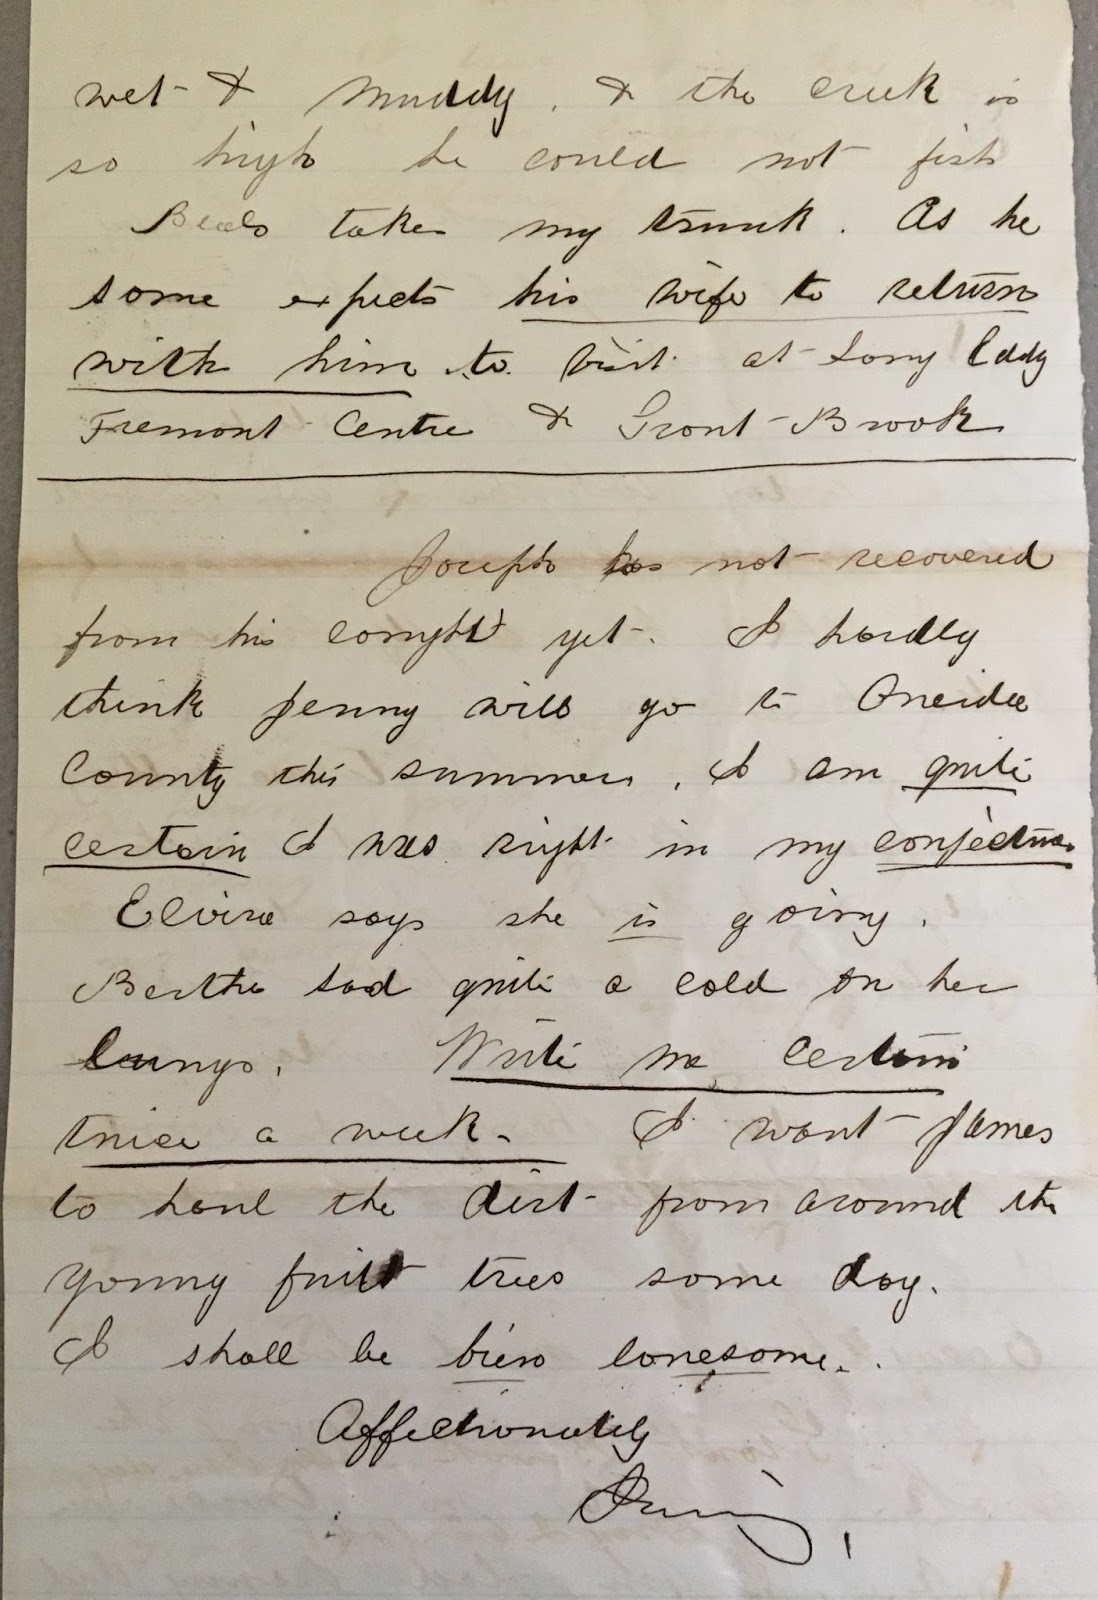 wet & muddy. & the creek is
so high he could not fish
takes my trunk. As he
some expects his wife to return
with him to visit at Long Eddy
Fremont Centre & Grant Brook
Joseph has not recovered
from his cought yet. I hardly
think Jenny will go to Oneida
County this summer. I am quite
certain I was right in my conjecture
Elvira says she is going.
Bertha had quite a cold on her
lungs. Write me certain
twice a week. I want James
to haul the dirt from around the
young fruit trees some day.
I shall be bien lonesome.
Affectionately
Irving,